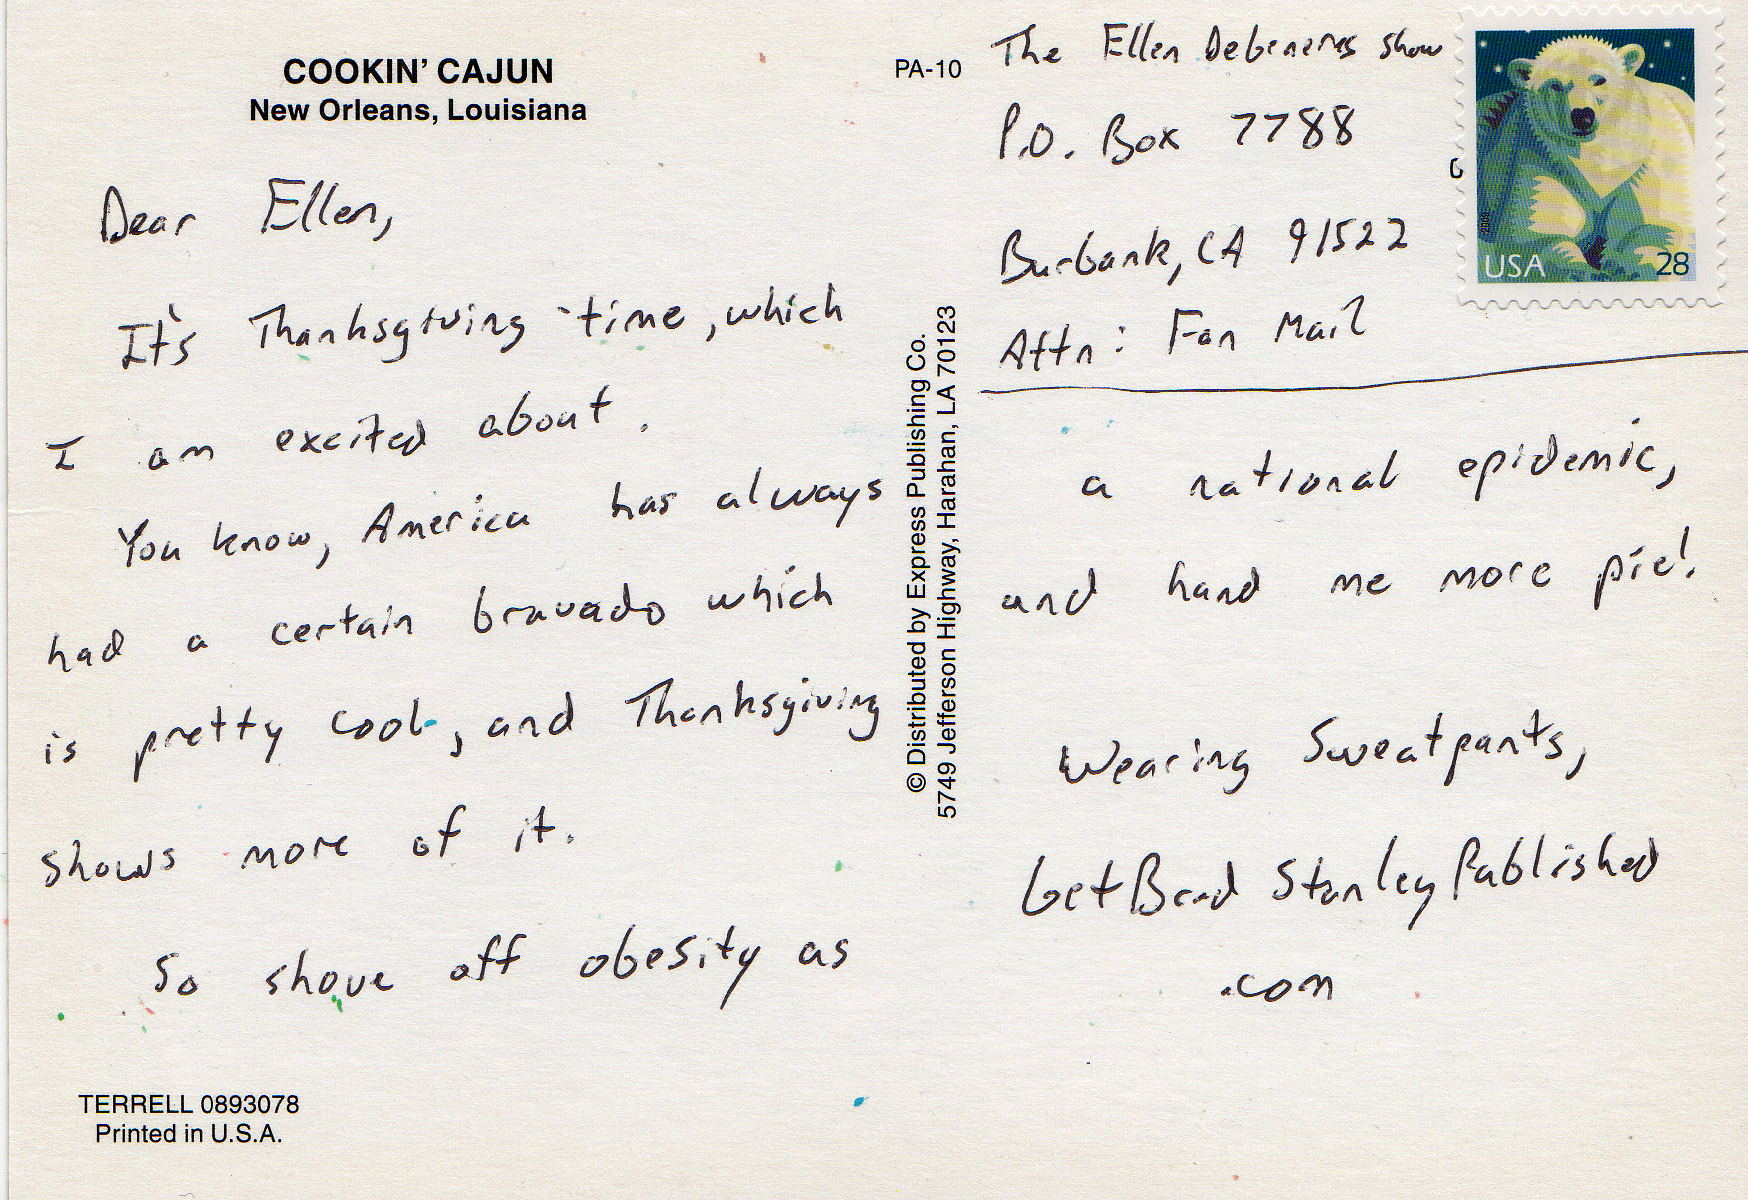 COOKIN' CAJUN
New Orleans, Louisiana
Dear Ellen,
It's Thanksgiving time, which
I am excited about.
You know, America has always
had a certain bravado which
is pretty cool, and Thanksgiving
shows more of it.
So shove off obesity as
TERRELL 0893078
Printed in U.S.A.
PA-10
© Distributed by Express Publishing Co.
5749 Jefferson Highway, Harahan, LA 70123
The Ellen DeGeneres Show
P.O. Box 7788
Burbank, CA 91522
Attn: Fan Mail
2009
USA 28
a national epidemic,
and hand me more pie!
Wearing Sweatpants,
GetBradStanleyPublished
.com